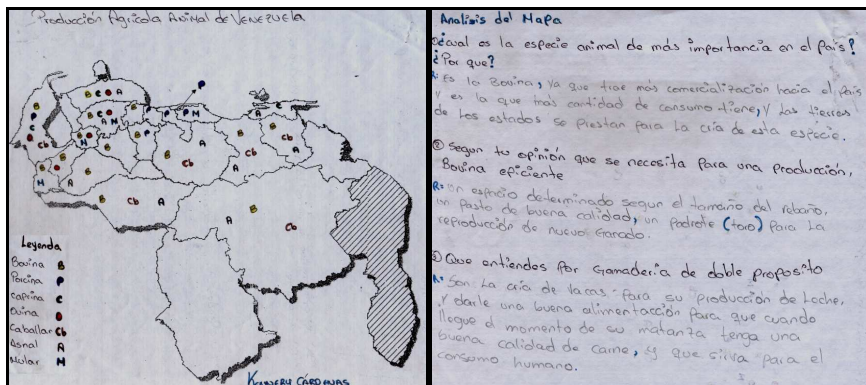 Producción Agricola Animal de Venezuela
P
B C O A
B C O A M
P P M
C A
B
P
C
O Cb
M
B O
B P
B A Cb
B A Cb
B A Cb
B
M O A
B Cb A
A B Cb
Leyenda
Bovina B
Porcina P
Caprina C
Ovina O
Caballar Cb
Asnal A
Mular M
CÁRDENAS
Analisis del Mapa
① ¿Cual es la especie animal de más importancia en el país?
¿Por que?
R: Es la Bovina, ya que trae más comercialización hacia el país
y es la que más cantidad de consumo tiene, y las tierras
de los estados se prestan para la cria de esta especie.
② Segun tu opinión que se necesita para una producción,
Bovina eficiente
R: Un espacio determinado segun el tamaño del rebaño,
un pasto de buena calidad, un padrote (toro) para la
reproducción de nuevo Ganado.
③ Que entiendes por Ganaderia de doble proposito
R: Son la cria de vacas para su producción de Leche,
y darle una buena alimentacción para que cuando
llegue el momento de su matanza tenga una
buena calidad de carne, y que sirva para el
consumo humano.